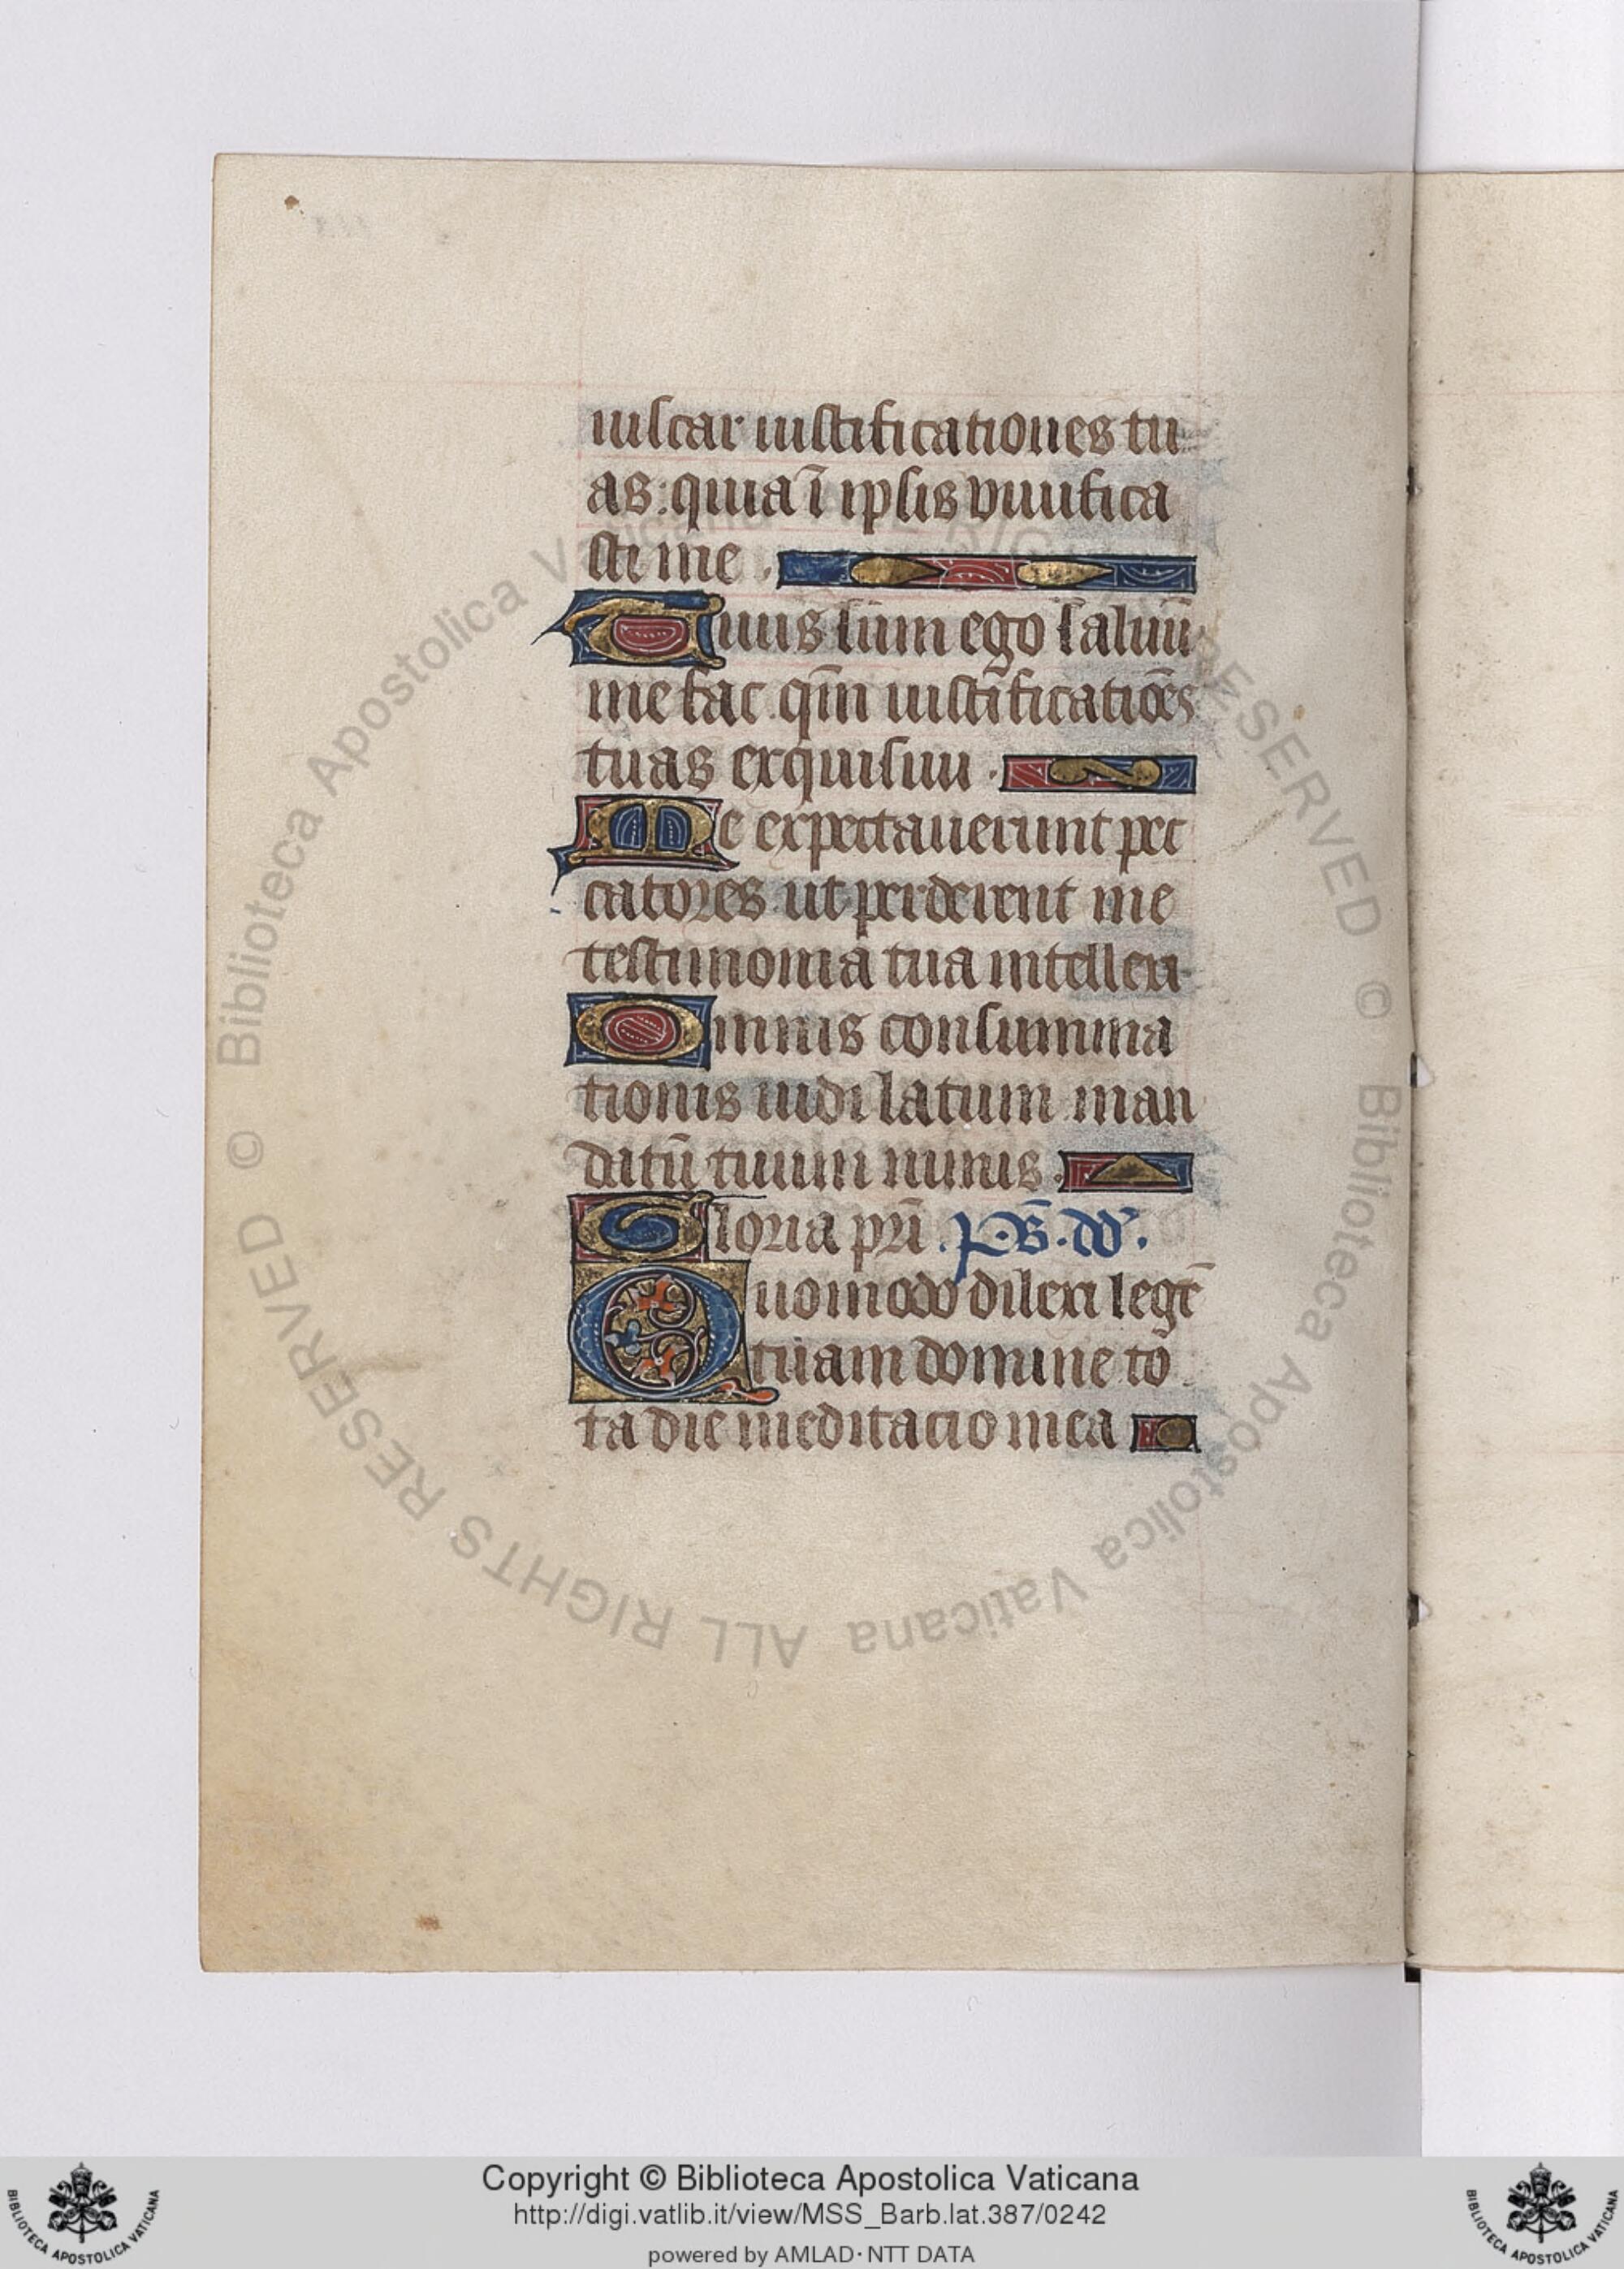 iuiscar iustificationes tu
as: quia ī ipsis viuifica
sti me.
Tuus sum ego saluū
me fac. qm̄ iustificatiōes
tuas exquisiui.
Me expectauerunt pec
catores ut perderent me
testimonia tua intellexi
Omnis consumma
tionis uidi latum man
datū tuum nimis.
Gloria pr̄i. ps̄. dd̄.
Quomodo dilexi legē
tuam domine to
ta die meditacio mea
© Biblioteca Apostolica Vaticana ALL RIGHTS RESERVED © Biblioteca Apostolica Vaticana ALL RIGHTS RESERVED
Copyright © Biblioteca Apostolica Vaticana
http://digi.vatlib.it/view/MSS_Barb.lat.387/0242
powered by AMLAD·NTT DATA
BIBLIOTECA APOSTOLICA VATICANA
BIBLIOTECA APOSTOLICA VATICANA